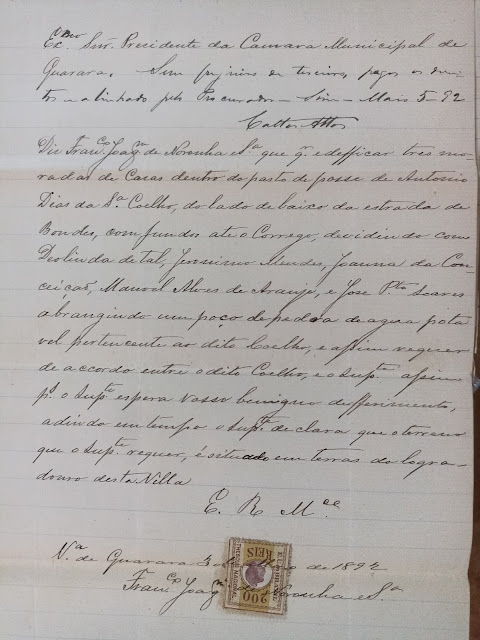 Ex.mo Snr. Prezidente da Camara Municipal de
Guarara. Sem prejuizo de terceiros, pagos os direi-
tos e alinhado pelo Procurador – Sim – Maio 5-92
Mattos
Diz Fran.co Joaq.m de Noronha eS.a que q.r edefficar tres mo-
radas de Casas dentro do pasto de posse de Antonio
Dias da S.a Coelho, do lado de baixo da estrada de
Bondes, com fundos ate o Corrego, devidindo com
Deolinda de tal, Jeronimo Mendes, Joanna da Con-
ceição, Manoel Alves de Araujo, e Jose P.to Soares
abrangindo um poço de pedra de agua pota
vel pertencente ao dito Coelho, e assim requer
de accordo entre o dito Coelho, e o Sup.te assim
p.s o Sup.te espera vosso benigno defferimento,
adindo em tempo o Sup.te declara que o terreno
que o Sup.te requer, é situado em terras do logra-
douro desta Villa
E. R. M.ce
V.a de Guarara 3 de Maio de 1892
Fran.co Joaq.m de Noronha eS.a
200
REIS
THESOURO NACIONAL